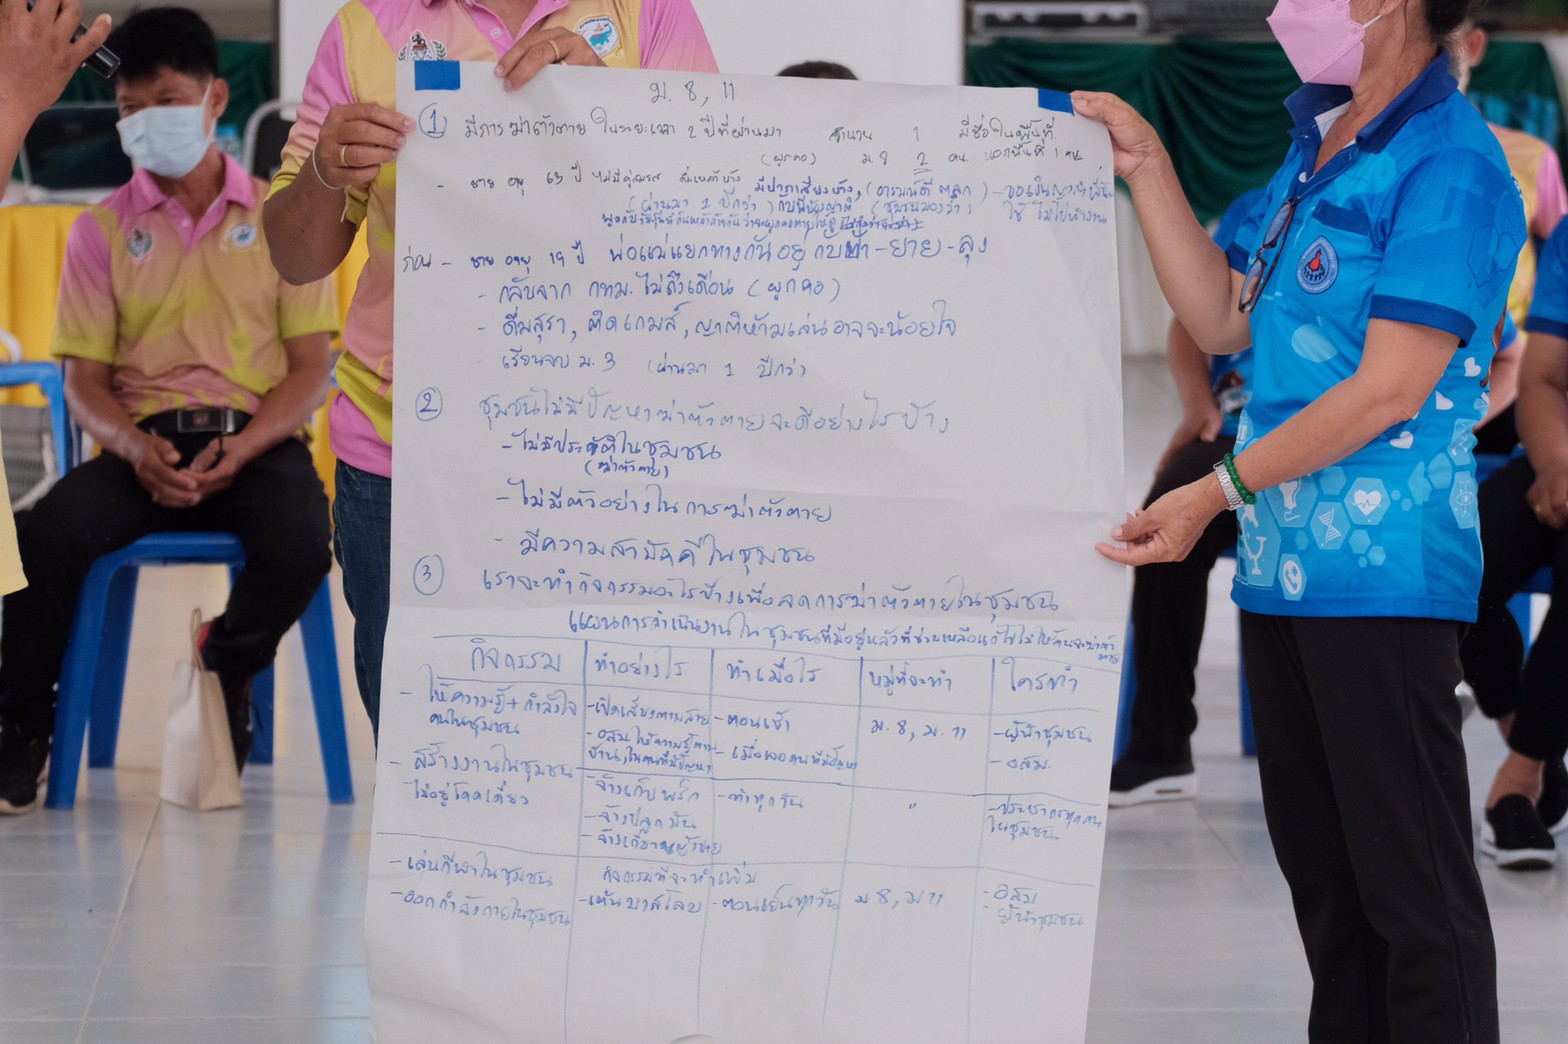 ม. 8, 11
① มีการฆ่าตัวตาย ในระยะเวลา 2 ปีที่ผ่านมา จำนวน 1 มีชื่อในพื้นที่
(ผูกคอ) ม. 8 2 คน นอกพื้นที่ 1 คน
- ชาย อายุ 63 ปี ไม่มี มีปากเสียงบ้าง, - ขอเงินญาติพี่น้อง
(ผ่านมา 1 ปีกว่า) กับพี่น้องญาติ ใช้ ไม่ไปทำงาน
ก่อน - ชาย อายุ 19 ปี พ่อแม่แยกทางกันอยู่กับป้า-ยาย-ลุง
- กลับจาก กทม. ไม่ถึงเดือน (ผูกคอ)
- ดื่มสุรา, ติดเกมส์, ญาติห้ามเล่นอาจจะน้อยใจ
เรียนจบ ม. 3 (ผ่านมา 1 ปีกว่า)
② ชุมชนไม่มีปัญหาฆ่าตัวตายจะดีอย่างไรบ้าง
- ไม่มีประวัติในชุมชน
(ฆ่าตัวตาย)
- ไม่มีตัวอย่างในการฆ่าตัวตาย
- มีความสามัคคีในชุมชน
③ เราจะทำกิจกรรมอะไรบ้างเพื่อลดการฆ่าตัวตายในชุมชน
แผนการดำเนินงานในชุมชนที่มีอยู่แล้วที่ช่วยเหลือแก้ไขไม่ให้คนฆ่าตัวตาย
กิจกรรม ทำอย่างไร ทำเมื่อไร หมู่ที่จะทำ ใครทำ
- ให้ความรู้+กำลังใจ - เปิดเสียงตามสาย - ตอนเช้า ม. 8, ม. 11 - ผู้นำชุมชน
คนในชุมชน - อสม.ให้ความรู้ตาม - เมื่อพอคนที่มีปัญหา - อสม.
บ้าน, ในคนที่มีปัญหา
- สร้างงานในชุมชน - จ้างเก็บพริก - ทำทุกวัน " - ประชากรทุกคน
- ไม่อยู่โดดเดี่ยว - จ้างปลูกมัน ในชุมชน
- จ้าง
- เล่นกีฬาในชุมชน กิจกรรมที่จะทำเพิ่ม
- ออกกำลังกายในชุมชน - เต้นบาสโลบ - ตอนเย็นทุกวัน ม 8, ม 11 - อสม
ผู้นำชุมชน